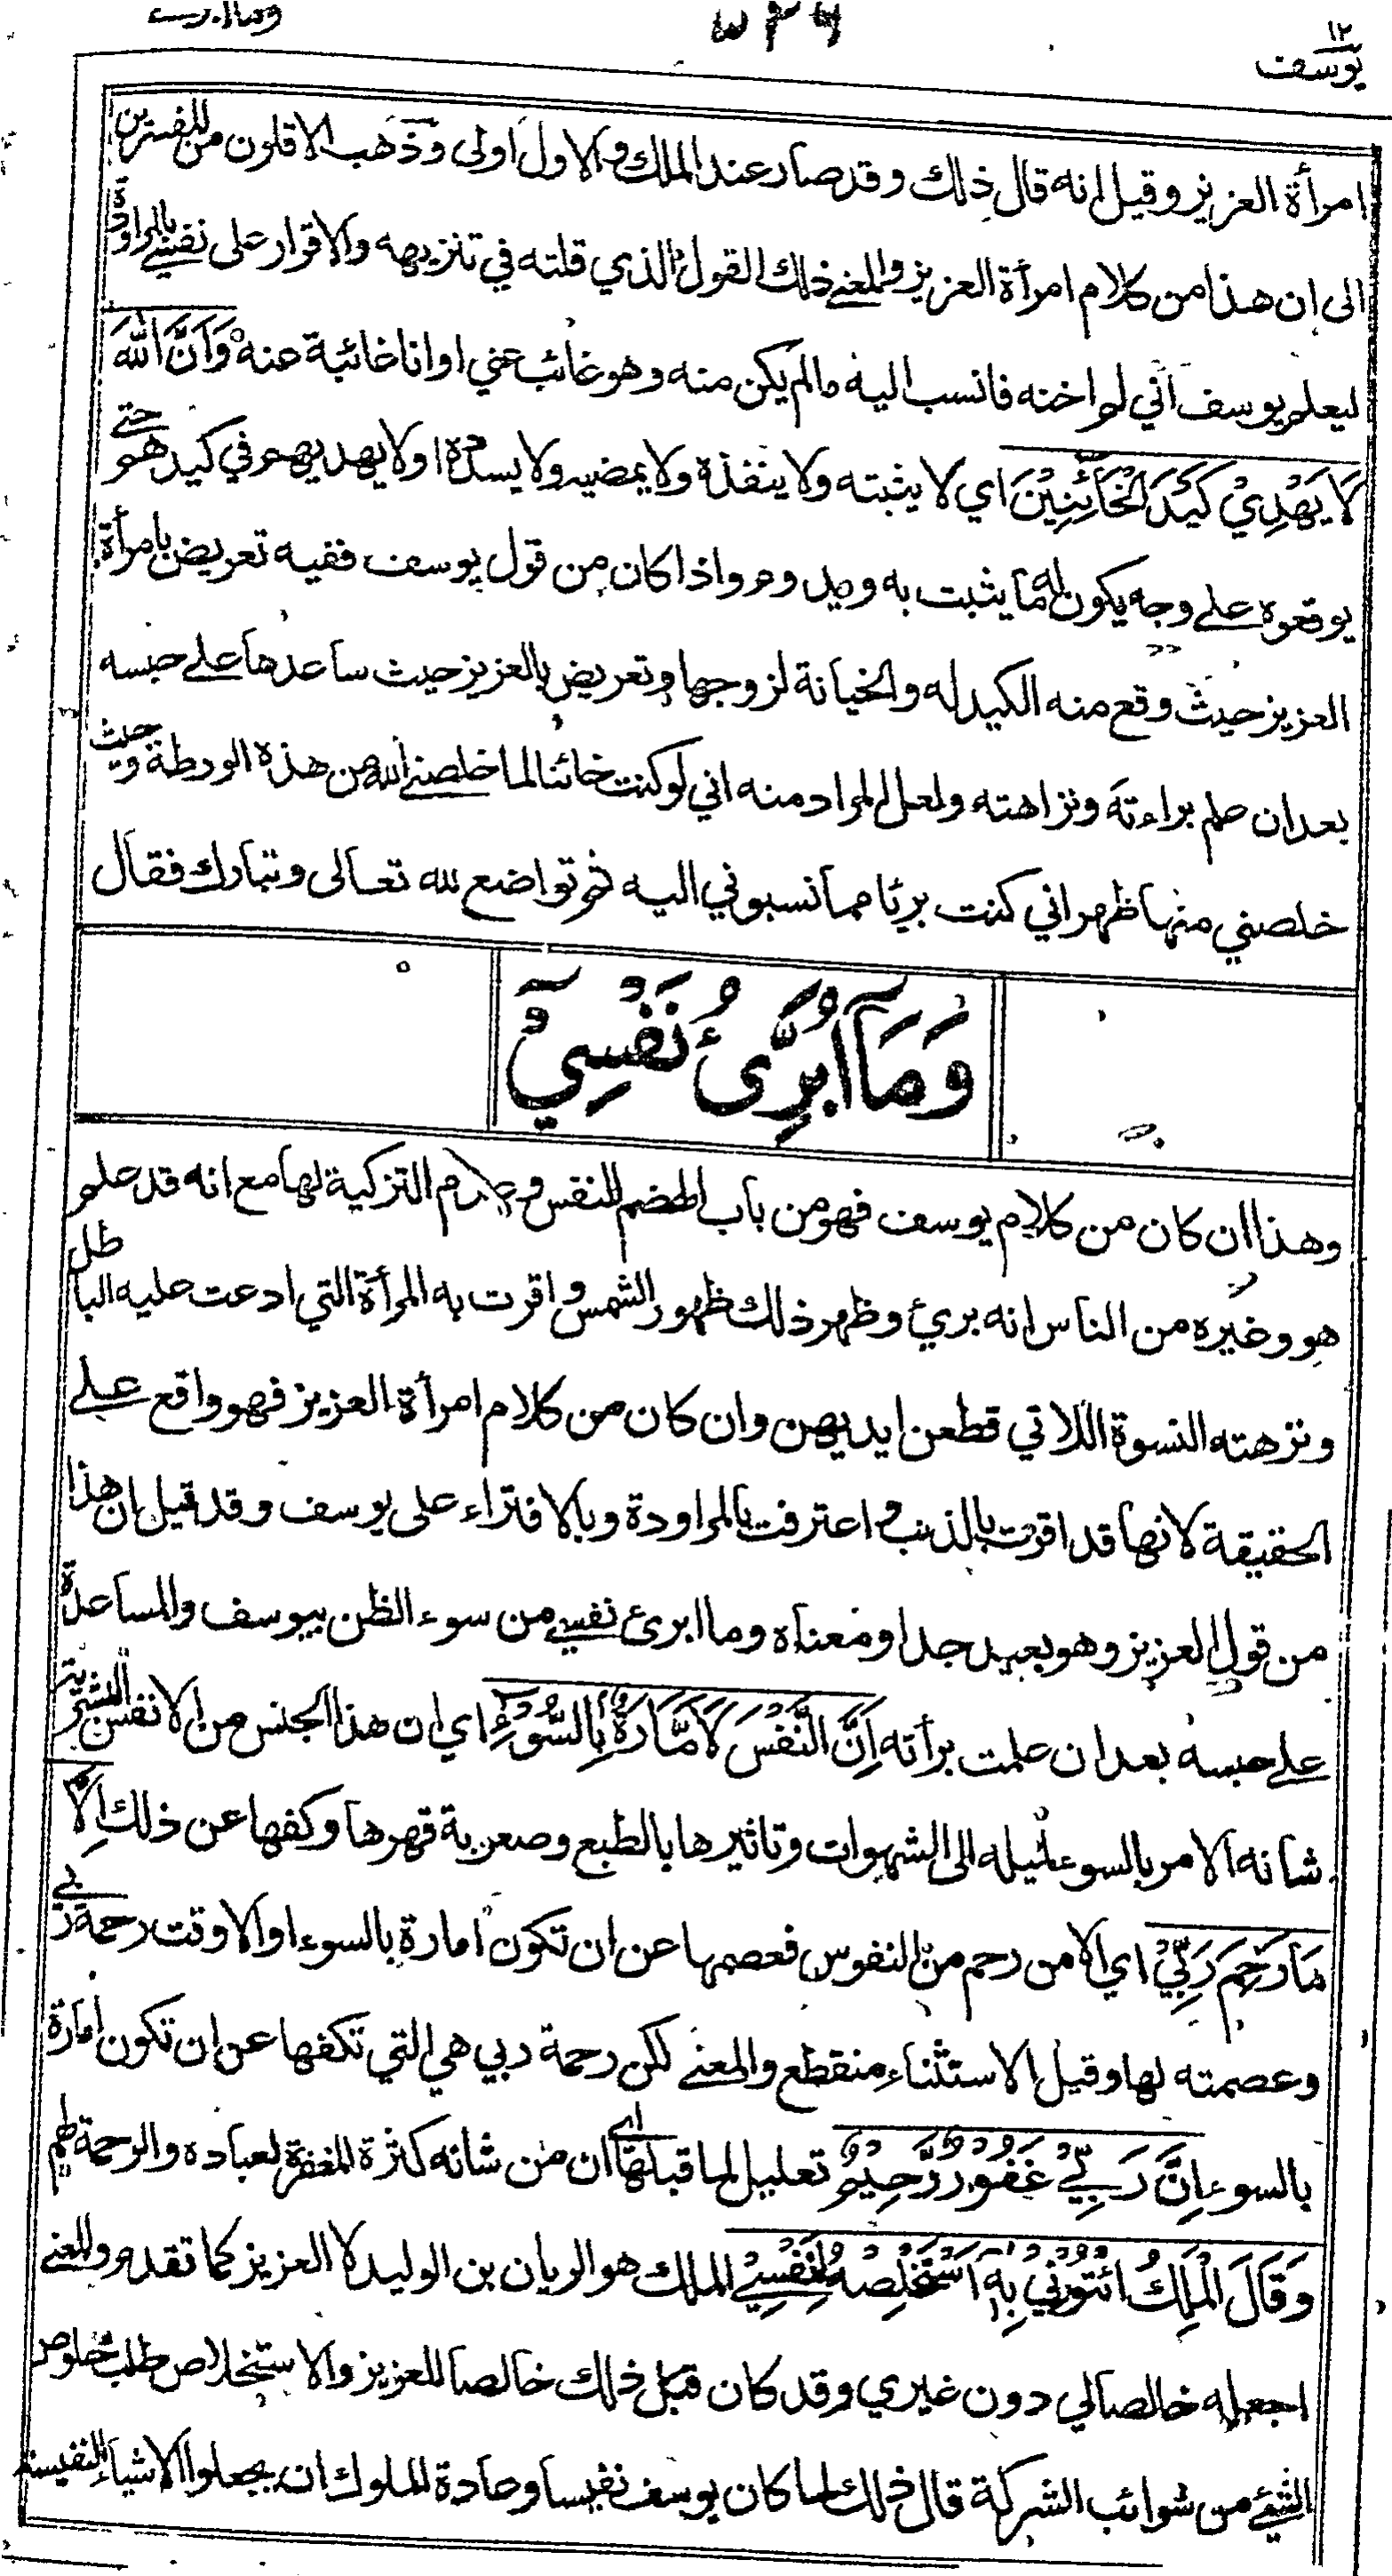 ١٢
يوسف
٥٣٦
وما ابرئ
امرأة العزيز وقيل انه قال ذلك وقد صار عند الملك والاول اولى وذهب الاقلون من المفسرين
الى ان هذا من كلام امرأة العزيز والمعنے ذلك القول الذي قلته في تنزيهه والاقرار على نفسي بالمراودة
ليعلم يوسف أني لم اخنه فانسب اليه ما لم يكن منه وهو غائب عني او انا غائبة عنه وَاَنَّ اللّٰهَ
لَا يَهْدِيْ كَيْدَ الْخَآئِنِيْنَ اي لا يثبته ولا ينفذه ولا يمضيه ولا يسدده او لا يهديهم في كيدهم حتے
يوقعوه علے وجه يكون له ما يثبت به ويدوم واذا كان من قول يوسف ففيه تعريض بامرأة
العزيز حيث وقع منه الكيد له والخيانة لزوجها وتعريض بالعزيز حيث ساعدها علے حبسه
بعد ان علم براءته ونزاهته ولعل المراد منه اني لو كنت خائنا لما خلصني الله من هذه الورطة وحيث
خلصني منها ظهر اني كنت بريئا مما نسبوني اليه ثم تواضع لله تعالى وتبارك فقال
وَمَآ اُبَرِّئُ نَفْسِيْ
وهذا ان كان من كلام يوسف فهو من باب الهضم للنفس وعدم التزكية لها مع انه قد علم
هو وغيره من الناس انه بريئ وظهر ذلك ظهور الشمس واقرت به المرأة التي ادعت عليه الباطل
ونزهته النسوة اللاتي قطعن ايديهن وان كان من كلام امرأة العزيز فهو واقع علے
الحقيقة لانها قد اقرت بالذنب واعترفت بالمراودة وبالافتراء على يوسف وقد قيل ان هذا
من قول العزيز وهو بعيد جدا ومعناه وما ابرئ نفسي من سوء الظن بيوسف والمساعدة
علے حبسه بعد ان علمت برأته اِنَّ النَّفْسَ لَاَمَّارَةٌۢ بِالسُّوْٓءِ اي ان هذا الجنس من الانفس البشرية
شانه الامر بالسوء لميله الى الشهوات وتاثيرها بالطبع وصعوبة قهرها وكفها عن ذلك اِلَّا
مَا رَحِمَ رَبِّيْ اي الا من رحم من النفوس فعصمها عن ان تكون امارة بالسوء او الا وقت رحمة ربي
وعصمته لها وقيل الاستثناء منقطع والمعنے لكن رحمة ربي هي التي تكفها عن ان تكون امارة
بالسوء اِنَّ رَبِّيْ غَفُوْرٌ رَّحِيْمٌ تعليل لما قبلها اي ان من شانه كثرة المغفرة لعباده والرحمة لهم
وَقَالَ الْمَلِكُ ائْتُوْنِيْ بِهٖٓ اَسْتَخْلِصْهُ لِنَفْسِيْ الملك هو الريان بن الوليد لا العزيز كما تقدم والمعنے
اجعله خالصا لي دون غيري وقد كان قبل ذلك خالصا للعزيز والاستخلاص طلب خلوص
الشيئ من شوائب الشركة قال ذلك لما كان يوسف نفيسا وعادة الملوك ان يجعلوا الاشياء النفيسة